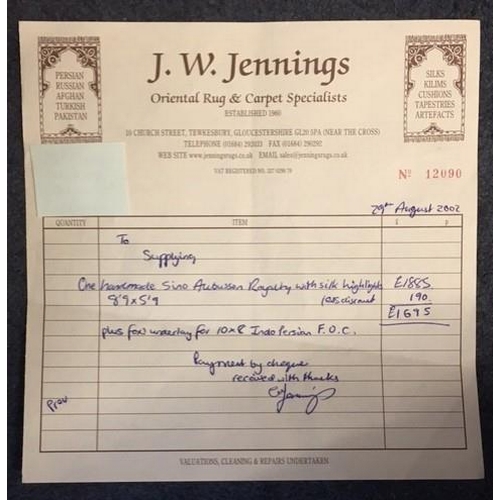 J. W. Jennings
Oriental Rug & Carpet Specialists
ESTABLISHED 1960
PERSIAN
RUSSIAN
AFGHAN
TURKISH
PAKISTAN
SILKS
KILIMS
CUSHIONS
TAPESTRIES
ARTEFACTS
10 CHURCH STREET, TEWKESBURY, GLOUCESTERSHIRE GL20 5PA (NEAR THE CROSS)
TELEPHONE (01684) FAX (01684)
WEB SITE www.jenningsrugs.co.uk EMAIL sales@jenningsrugs.co.uk
VAT REGISTERED NO.
Nº 12090
29th August 2002
QUANTITY ITEM £ p
To
Supplying
One handmade Sino Aubusson Royalty with silk highlights £1885
8'9 x 5'9 10% discount 190
£1695
plus underlay for 10x8 Indo Persian F.O.C.
Payment by cheque
received with thanks
VALUATIONS, CLEANING & REPAIRS UNDERTAKEN